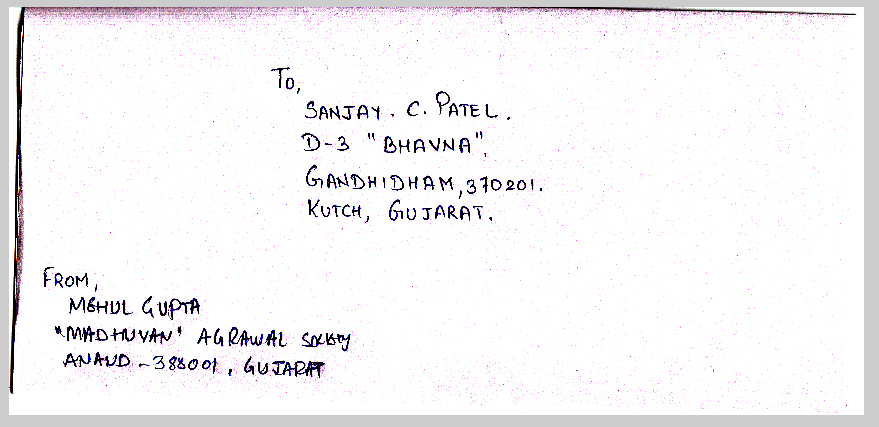 To,
SANJAY. C. PATEL.
D-3 "BHAVNA",
GANDHIDHAM, 370201.
KUTCH, GUJARAT.
FROM,
MEHUL GUPTA
"MADHUVAN" AGRAWAL Society
ANAND - 388001, GUJARAT